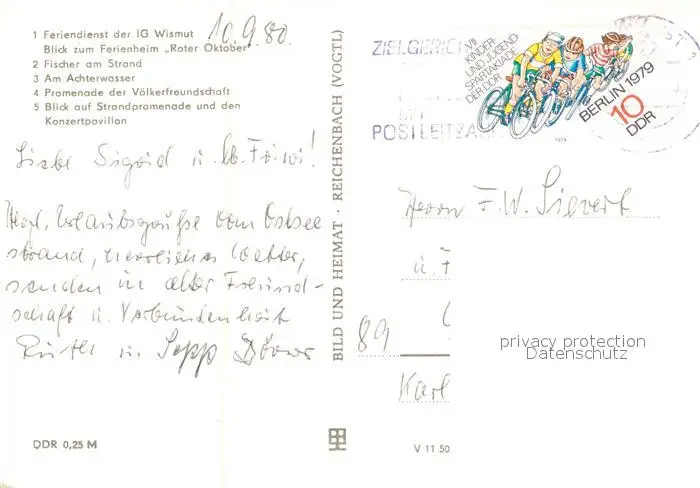 1 Feriendienst der IG Wismut
Blick zum Ferienheim „Roter Oktober"
2 Fischer am Strand
3 Am Achterwasser
4 Promenade der Völkerfreundschaft
5 Blick auf Strandpromenade und den
Konzertpavillon
10.9.80.
Liebe Sigrid u. lb. Fiwi!
Herzl. Urlaubsgrüße vom Ostsee
strand, herrliches Wetter,
senden in alter Freund-
schaft u. Verbundenheit
Ruth u. Sepp
DDR 0,25 M
BILD UND HEIMAT · REICHENBACH (VOGTL)
V 11 50
ZIELGERICH
POSTLEITZA
VII.
KINDER-
UND JUGEND-
SPARTAKIADE
DER DDR
BERLIN 1979
10
DDR
1979
Herrn F.W. Sievert
u. F
89
Karl
privacy protection
Datenschutz